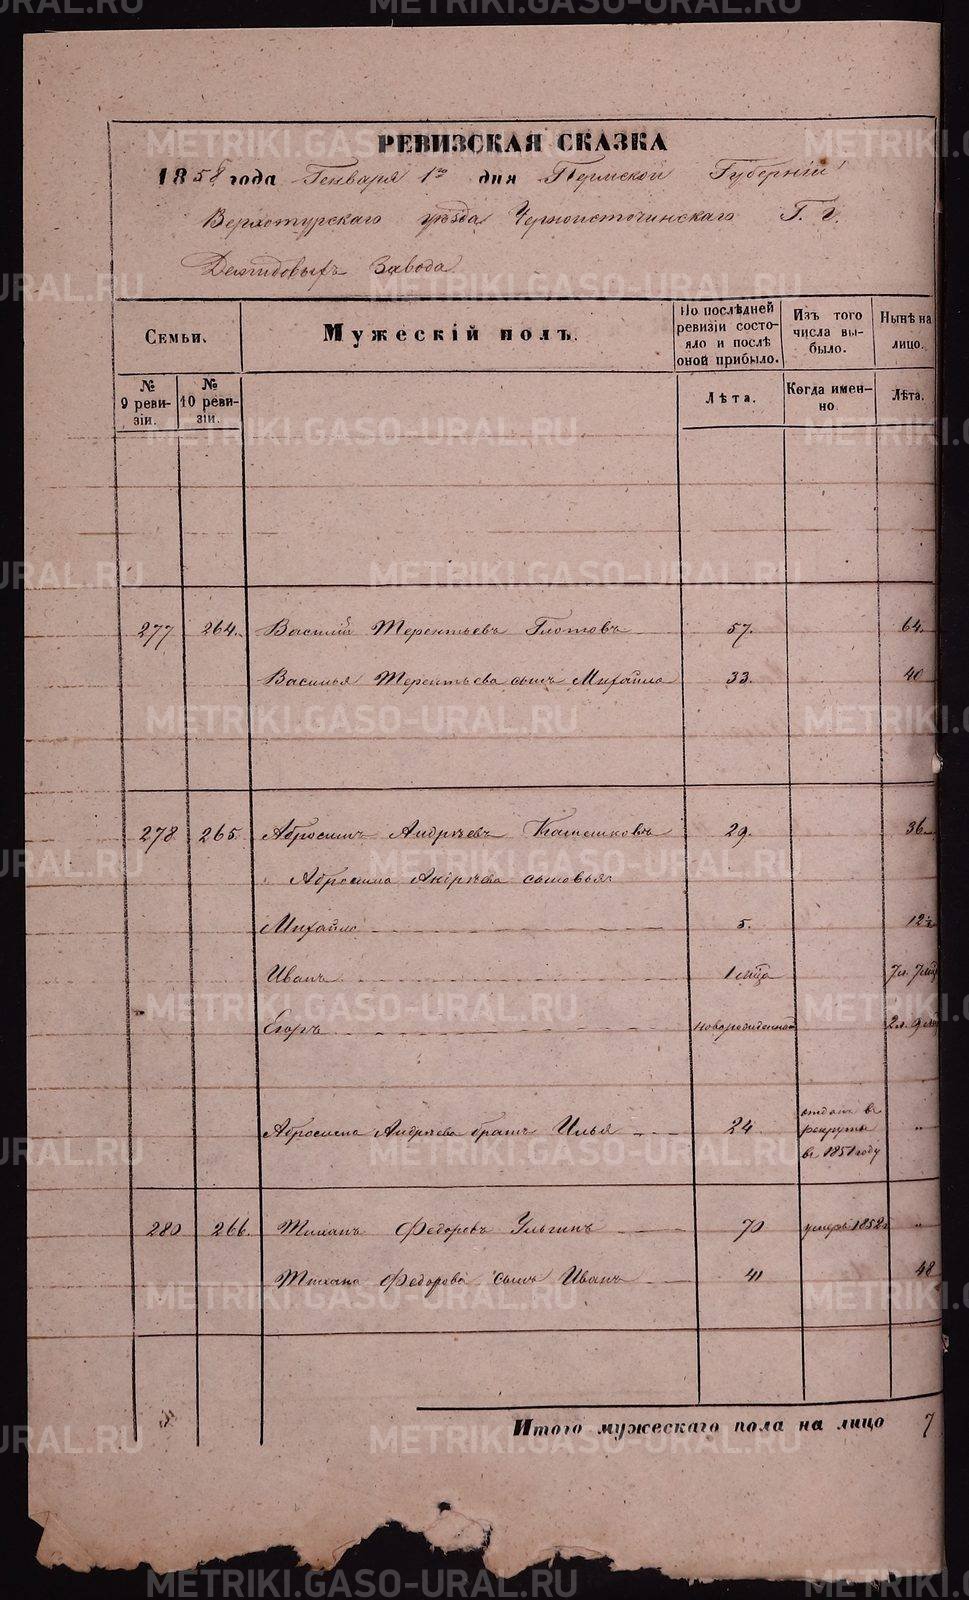 РЕВИЗСКАЯ СКАЗКА
1858 года Генваря 1го дня Пермской Губерніи
Верхотурскаго уѣзда Черноисточинскаго Г. г.
Демидовыхъ Завода
Семьи.
Мужескій полъ.
По послѣдней ревизіи состояло и послѣ оной прибыло.
Изъ того числа выбыло.
Нынѣ на лицо.
№ 9 ревизіи.
№ 10 ревизіи.
Лѣта.
Когда именно.
Лѣта.
277 264. Василій Терентьевъ Глотовъ 57. 64.
Василья Терентьева сынъ Михайло 33. 40
278 265. Абросимъ Андрѣевъ 29. 36
Абросима Андрѣева сыновья
Михайло 5. 12½
Иванъ 1 мѣца 7л. 7мѣц
Егоръ новорожденной 2л. 9 мѣ
Абросима Андрѣева братъ Илья 24 отданъ въ рекруты въ 1851 году "
280 266. Тиханъ Федоровъ Ульгинъ 70 умеръ 1852г "
Тихана Федорова сынъ Иванъ 41 48
Итого мужескаго пола на лицо 7
METRIKI.GASO-URAL.RU